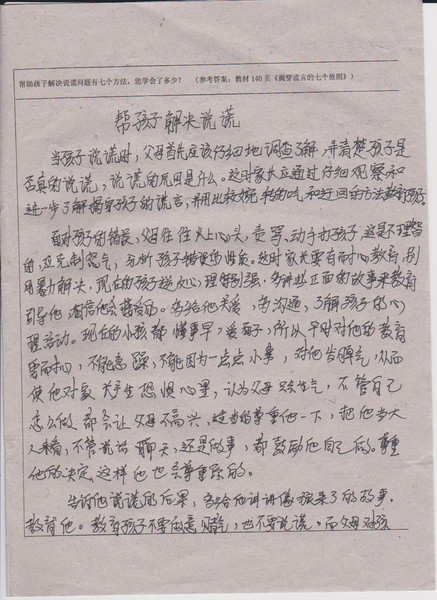 帮助孩子解决说谎问题有七个方法，您学会了多少？ （参考答案：教材140页《揭穿谎言的七个原则》）
帮孩子解决说谎
当孩子说谎时，父母首先应该仔细地调查了解，弄清楚孩子是
否真的说谎，说谎的原因是什么。这时家长应通过仔细观察和
进一步了解揭穿孩子的谎言，并用比较婉转的 和迂回的方法教育孩子。
面对孩子的错误，父母往往火上心头，责骂、动手打孩子，这是不理智
的，应克制怒气，分析孩子错误的性质。这时家长要有耐心教育，别
用暴力解决，现在的孩子逆反心理特别强，多讲些正面的故事来教育
引导他，相信他会 的。多给他关爱，多沟通，了解孩子的心
理活动。现在的小孩都懂事早，爱面子，所以平时对他的教育
要耐心，不能急躁，不能因为一点点小事，对他发脾气，从而
使他对家长产生恐惧心里，认为父母 生气，不管自己
怎么做都会让父母不高兴，适当的尊重他一下，把他当大
人来看，不管说话聊天，还是做事，都鼓励他自己做。尊重
他的决定，这样他也会尊重你的。
告诉他说谎的后果，多给他讲讲像狼来了的故事.
教育他。教育孩子不要 赌气，也不要说谎。而父母对孩